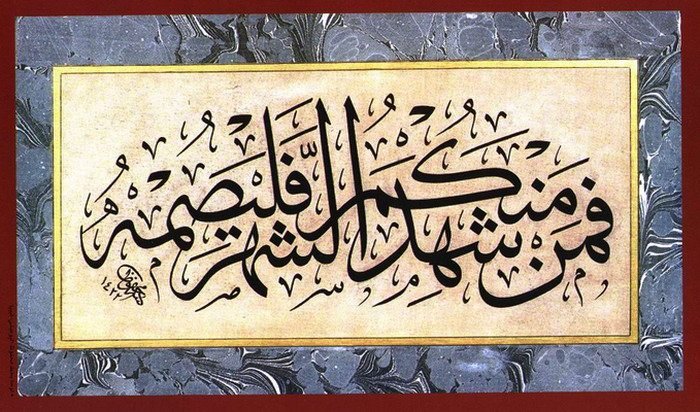 فَمَن شَهِدَ مِنكُمُ الشَّهْرَ فَلْيَصُمْهُ
١٤٢٢